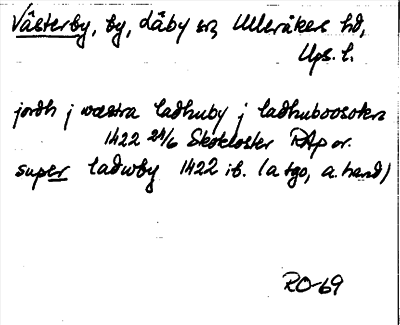 Västerby, by, Låby sn, Ulleråkers hd,
Ups. l.
jordh j wæstra ladhuby j ladhuboosokn
1422 24/6 Skokloster RAp or.
super laduby 1422 ib. (a tgo, a. hand)
RO-69